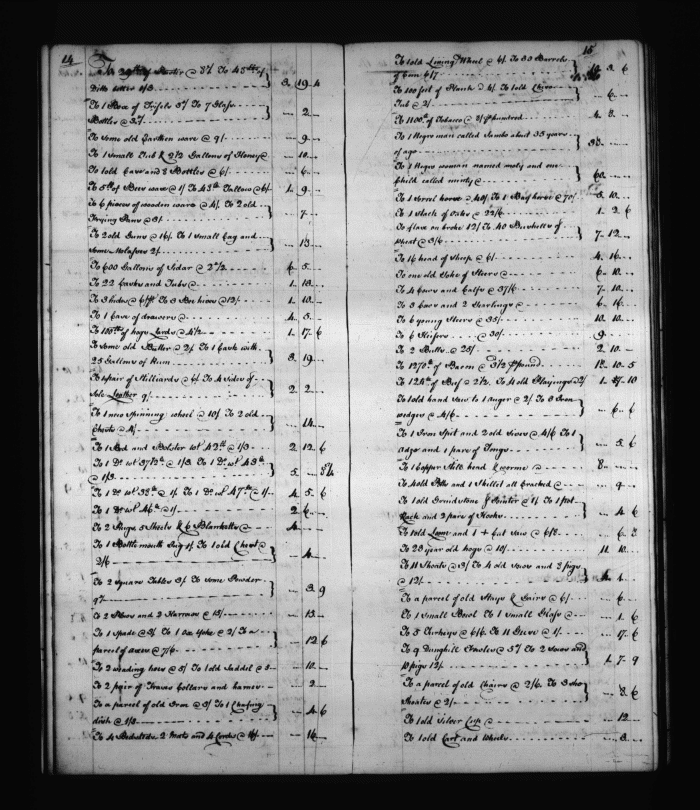 14
To 29 lb of Pewter @ 3/ To 43 lb of
Ditto @ 1/3 3 19 4
To 1 Box of 3/ To 7 Glass
Bottles @ 3/ -- 2 --
To some old Earthen ware @ 9/ -- 9 --
To 1 small Tub & 2 1/2 Gallons of Honey @ -- 10 --
To 1 old Case and 8 Bottles @ 6/ -- 6 --
To 5 lb of Bees wax @ 1/ To 43 lb Tallow @ 6/ 1 9 --
To 6 pieces of wooden ware @ 4/ To 2 old
Frying Pans @ 3/ -- 7 --
To 2 old Guns @ 16/ To 1 small Cag and
some Molasses 2/ -- 13 --
To 600 Gallons of Sidar @ 2 1/2 6 5 --
To 22 Casks and Tubs 1 13 --
To 3 hides @ To 3 Bee hives @ 12/ 1 10 --
To 1 Case of drawers 4 5 --
To lb of hogs Lard @ 4 1/2 1 17 6
To some old Butter @ 2/ To 1 Cask with
25 Gallons of Rum 3 19 --
To 1 pair of Stilliards @ 6/ To 4 sides of
Sole Leather 9/ 2 2 --
To 1 new spinning wheel @ 10/ To 2 old
Chests @ 4/ -- 14 --
To 1 Bed and Bolster wt. 42 lb @ 1/3 2 12 6
To 1 Do. wt 37 1/2 lb @ 1/3 To 1 Do. wt. 43 lb
@ 1/3 5 --
To 1 Do. wt. 38 lb @ 1/ To 1 Do. wt. 47 lb @ 1/ 4 5 6
To 1 Do. wt. 46 lb @ 1/ 2 6 --
To 2 Rugs 5 Sheets & 6 Blankets 4 --
To 1 Bottle mouth Jug 1/ To 1 old Chest @
2/6 -- 4 --
To 2 square Tables 3/ To some Powder
9 -- 3 9
To 2 Plows and 2 Harrows @ 13/ -- 13 --
To 1 spade @ 3/ To 1 Ox Yoke @ 2/ To a
parcel of axes @ 7/6 -- 12 6
To 2 weading hoes @ 5/ To 1 old Saddel @ 5 -- 10 --
To 2 pair of Traces Collars and hames -- 2 --
To a parcel of old Iron @ 3/ To 1 Chafing
dish @ 1/3 -- 4 6
To 4 Bedsteds 2 Mats and 4 Cords @ 16/ -- 16 --
15
To 1 old Lining Wheel @ 6/ To 30 Barrels
of Corn 6 3 6
To 100 feet of Plank @ 4/ To 1 old
Tub @ 2/ -- 6 --
To 1100 lb of Tobacco @ 8/ hundred 4 8 --
To 1 Negro man called Sambo about 35 years
of age
To 1 Negro woman named moly and one
Child called minty 60 --
To 1 Sorrel horse @ 40/ To 1 Bay horse @ 70/ 5 10 --
To 1 stack of Oats @ 22/6 1 2 6
To flax un broke 12/ To 40 Bushells of
wheat @ 3/6 7 12 --
To 16 head of Sheep @ 6/ 4 16 --
To one old Yoke of Steers 6 10 --
To 4 Cows and Calfs @ 37/6 7 10 --
To 3 Cows and 2 Yearlings 6 16 --
To 6 young Steers @ 35/ 10 10 --
To 6 Heifers @ 30/ 9 --
To 2 Bulls @ 25/ 2 10 --
To lb of Bacon @ 3 1/2 pr pound 10 5
To lb of Beef @ 2 1/2 To 4 old 2/ 1 17 10
To 1 old hand saw to 1 Auger @ 2/ To 3 Iron
wedges @ 4/6 -- 6 6
To 1 Iron Spit and 2 old Sives @ 4/6 To 1
Adze and 1 pare of Tongs -- 5 6
To 1 Copper Still head & worme 8 --
To 4 old Pots and 1 Skillet all Cracked -- 9 --
To 1 old Grindstone & 1/ To 1 pot
Rack and 2 pare of Hooks -- 4 6
To 1 old Loom and 1 + Cut saw @ 6/3 -- 6 3
To 23 year old hogs @ 10/ 11 10 --
To 11 Shoats @ 3/ To 4 old sows and 2 pigs
@ 12/
To a parcel of old Stays & Gears @ 6/ -- 6 --
To 1 small Bowl To 1 small Glass -- 1 6
To 5 Turkeys @ 6/6 To 11 Geese @ 1/ -- 17 6
To 9 Dunghill Fowles @ 5/ To 2 Sows and
10 pigs 12/ 1 7 9
To a parcel of old Chairs @ 2/6 To 3
Shoates @ 2/ -- 8 6
To 1 old Silver Cup -- 12 --
To 1 old Cart and Wheels -- 3 --